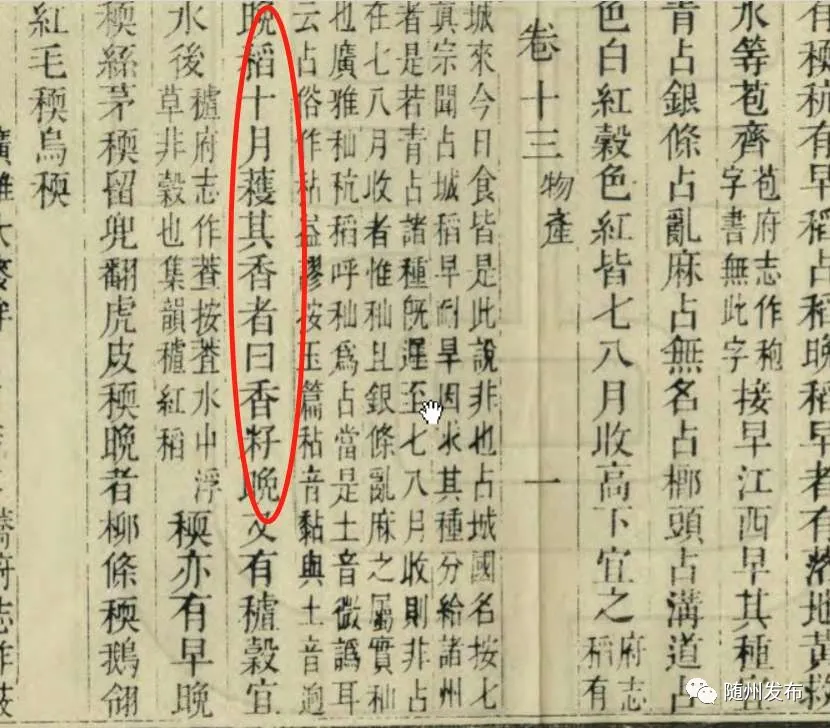 有稉秔有早稻占稻晚稻早者有落地黄救
水等苞齊
苞府志作
字書無此字
接早江西早其種
青占銀條占亂麻占無名占梛頭占溝道占
色白紅穀色紅皆七八月收高下宜之
府志
稻有
卷十三 物產 一
城來今日食皆是此說非也占城國名按七
真宗聞占城稻早耐旱因求其種分給諸州
者是若青占諸種旣遲至七八月收則非占
在七八月收者惟秈且銀條亂麻之屬實秈
也廣雅秈秔稻呼秈爲占當是土音微譌耳
云占俗作秥益謬按玉篇秥音黏與土音迥
晚稻十月穫其香者曰香籽晚又有穭穀宜
水後
穭府志作按水中浮
草非穀也集韻穭紅稻
稬亦有早晚
稬絲茅稬留兜翻虎皮稬晚者柳條稬鵝翎
紅毛稬烏稬
廣雅大麥
随州发布